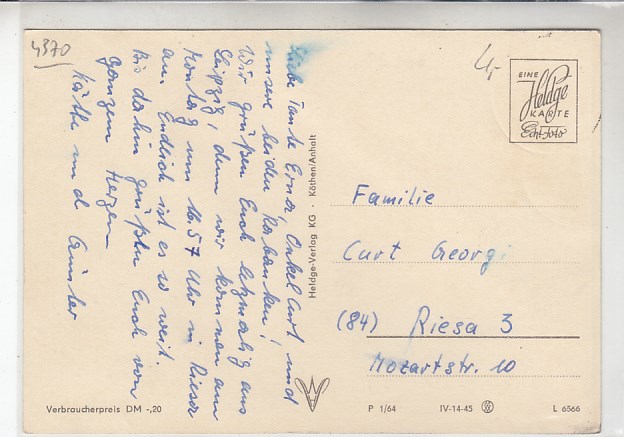 4370
4,-
EINE
Heldge
KARTE
Echt Foto
Liebe Tante Erna, Onkel Curt und
unsere beiden Rabauken!
Wir grüßen Euch letzmalig aus
Leipzig, denn wir kommen am
Montag um 16.57 Uhr in Riesa
an. Endlich ist es so weit.
Bis dahin grüßen Euch von
ganzem Herzen
Käthe und Günter
Heldge-Verlag KG · Köthen/Anhalt
Familie
Curt Georgi
(84) Riesa 3
Mozartstr. 10
Verbraucherpreis DM -,20
P 1/64 IV-14-45 L 6566